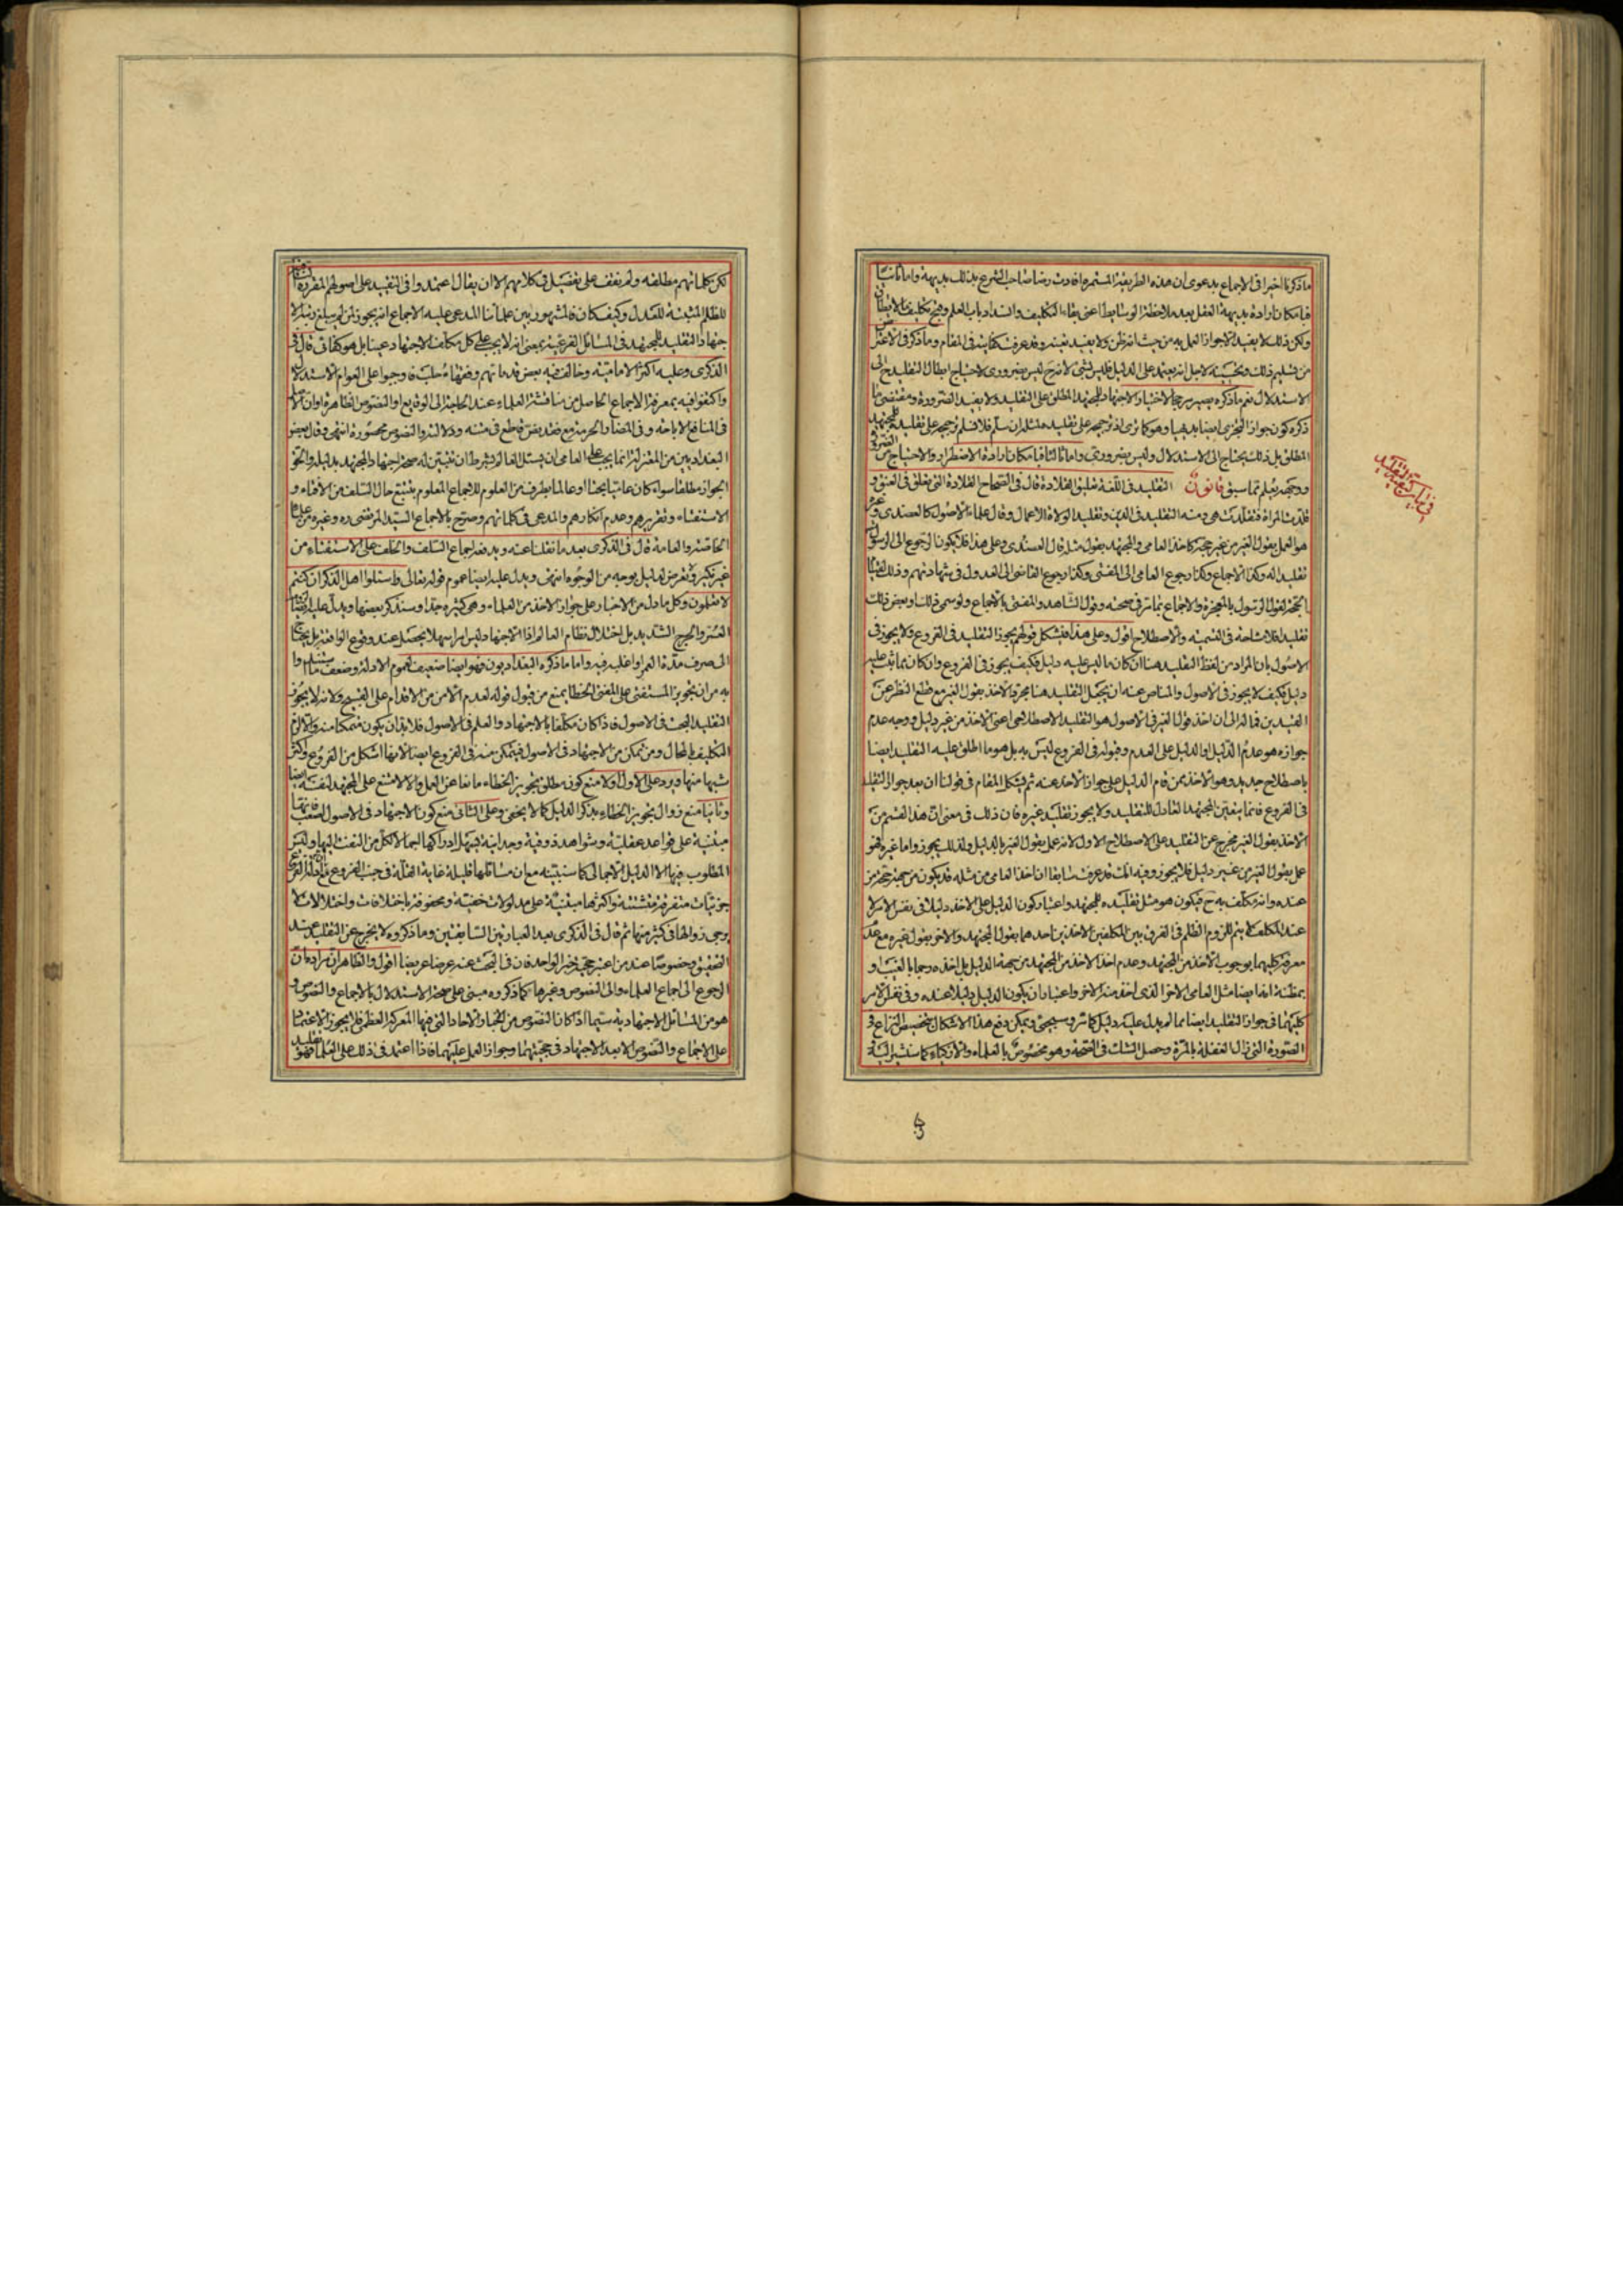 ما ذكرنا اخيرا فى الاجماع بدعوى ان هذه الطريقة المستمرة افادت رضا صاحب الشرع بذلك بديهة واما ثانيا
فبامكان ارادة بديهة العقل بعد ملاحظة الوسايط اعنى بقاء التكليف وانسداد باب العلم وقبح تكليف ما لا يطاق
ولكن ذلك لا يفيد الا جواز العمل به من حيث انه ظن ولا يفيد تعينه وقد عرفت كفايته فى المقام وما ذكره فى الاعتراض
من تسليم ذلك
الاستدلال نعم ما ذكره يصير مرجحا لاختيار الاجتهاد للمجتهد المطلق على التقليد ولا يفيد الضرورة ومقتضى ما
ذكره كون جواز التجزى ايضا بديهيا وهو كما ترى اذ ترجيحه على تقليد مثله ان سلم فلا نسلم ترجيحه على تقليد المجتهد
المطلق بل ذلك يحتاج الى الاستدلال وليس بضرورى واما ثالثا فبامكان ارادة الاضطرار والاحتياج من الضرورة
ووجهه يعلم مما سبق قانون التقليد فى اللغة تعليق القلادة قال فى الصحاح القلادة التى تعلق فى العنق و
قلدت المراة فتقلدت هى ومنه التقليد فى الدين وتقليد الولاة الاعمال وقال علماء الاصول كالعضدى وغيره
هو العمل بقول الغير من غير حجة كاخذ العامى والمجتهد بقول مثله قال العضدى وعلى هذا فلا يكون الرجوع الى الرسول
تقليدا له وكذا الى الاجماع وكذا رجوع العامى الى المفتى وكذا رجوع القاضى الى العدول فى شهادتهم وذلك لقيام
الحجة لقول الرسول بالمعجزة والاجماع بما مر فى حجيته وقول الشاهد والمفتى بالاجماع ولو سمى ذلك او بعض ذلك
تقليدا فلا مشاحة فى التسمية والاصطلاح اقول وعلى هذا فيشكل قولهم يجوز التقليد فى الفروع ولا يجوز فى
الاصول بان المراد من لفظ التقليد هنا ان كان ما ليس عليه دليل فكيف يجوز فى الفروع وان كان مما ثبت عليه
دليل فكيف لا يجوز فى الاصول والمناص عنه ان يجعل التقليد هنا مجرد الاخذ بقول الغير مع قطع النظر عن
القيدين فمآله الى ان اخذ قول الغير فى الاصول هو التقليد الاصطلاحى اعنى الاخذ من غير دليل ووجه عدم
جوازه هو عدم الدليل او الدليل على العدم وقبوله فى الفروع ليس به بل هو ما اطلق عليه التقليد ايضا
باصطلاح جديد وهو الاخذ ممن قام الدليل على جواز الاخذ عنه ثم يشكل المقام فى قولنا ان بعد جواز التقليد
فى الفروع فانما يتعين المجتهد العادل للتقليد ولا يجوز تقليد غيره فان ذلك فى معنى ان هذا القسم من
الاخذ بقول الغير مخرج عن التقليد على الاصطلاح الاول لانه عمل بقول الغير بالدليل ولذلك يجوز واما غيره فهو
عمل بقول الغير من غير دليل فلا يجوز وفيه انك قد عرفت سابقا ان اخذ العامى من مثله قد يكون من جهة حجة
عنده وانه مكلف به ح فيكون هو مثل تقليده للمجتهد واعتبار كون الدليل على الاخذ دليلا فى نفس الامر لا
عند المكلف لا يتم للزوم الظلم فى الفرق بين المكلفين الاخذين احدهما بقول المجتهد والاخر بقول غيره مع عدم
معرفة كليهما بوجوب الاخذ من المجتهد وعدم اخذ الاخذ من المجتهد من جهة الدليل بل اخذه رجما بالغيب او
بمظنة انه ايضا مثل العامى الاخر الذى اخذ منه الاخر واعتبار ان يكون الدليل دليلا عنده وفى نفس الامر
كليهما فى جواز التقليد ايضا مما لم يدل عليه دليل كما مر وسيجئ ويمكن دفع هذا الاشكال بتخصيص النزاع فى
الصورة التى زال الغفلة بالمرة وحصل الشك فى الصحة وهو مخصوص بالعلماء والاذكياء كما سنشير اليه
لكن كلماتهم مطلقة ولم نقف على تفصيل فى كلامهم الا ان يقال اعتمدوا فى التقييد على اصولهم المقررة
للظلم المثبتة للعدل وكيف كان فالمشهور بين علمائنا المدعى عليه الاجماع انه يجوز لمن لم يبلغ رتبة الا
جتهاد التقليد للمجتهد فى المسائل الفرعية بمعنى انه لا يجب على كل مكلف الاجتهاد عينا بل هو كفائى قال فى
الذكرى وعليه اكثر الامامية وخالف فيه بعض قدمائهم وفقهاء حلب فاوجبوا على العوام الاستدلال
واكتفوا فيه بمعرفة الاجماع الحاصل من مناقشة العلماء عند الحاجة الى الوقايع او النصوص الظاهرة او ان الاصل
فى المنافع الاباحة وفى المضار الحرمة مع فقد نص قاطع فى متنه ودلالته والنصوص محصورة انتهى وقال بعض
البغداديين من المعتزلة انما يجب على العامى ان يسئل العالم بشرط ان يتبين له صحة اجتهاد المجتهد بدليله والحق
الجواز مطلقا سواء كان عاميا بحتا او عالما بطرف من العلوم للاجماع المعلوم بتتبع حال السلف من الافتاء و
الاستفتاء وتقريرهم وعدم انكارهم والمدعى فى كلماتهم وصرح بالاجماع السيد المرتضى ره وغيره من علماء
الخاصة والعامة قال فى الذكرى بعد ما نقلنا عنه ويدفعه اجماع السلف والخلف على الاستفتاء من
غير نكير وتعرض لدليل بوجه من الوجوه انتهى ويدل عليه ايضا عموم قوله تعالى واسئلوا اهل الذكر ان كنتم
لا تعلمون وكل ما دل من الاخبار على جواز الاخذ من العلماء وهى كثيرة جدا وسنذكر بعضها ويدل عليه ايضا
العسر والحرج الشديد بل اختلال نظام العالم اذ الاجتهاد ليس امرا سهلا يحصل عند وقوع الواقعة بل يحتاج
الى صرف مدة العمر او اغلبه فيه واما ما ذكره البغداديون فهو ايضا ضعيف لعموم الادلة وضعف ما استدلوا
به من ان تجويز المستفتى على المفتى الخطا يمنع من قبول قوله لعدم الامن من الاقدام على القبيح ولانه لا يجوز
التقليد البحت فى الاصول فاذا كان مكلفا بالاجتهاد والعلم فى الاصول فلا بد ان يكون متمكنا منه والا لزم
التكليف بالمحال ومن تمكن من الاجتهاد فى الاصول فيتمكن منه فى الفروع ايضا لانها اشكل من الفروع واكثر
شبها منها ويرد على الاول اولا منع كون مطلق تجويز الخطاء مانعا عن العمل والا لامتنع على المجتهد لنفسه ايضا
وثانيا منع زوال تجويز الخطاء بذكر الدليل كما لا يخفى وعلى الثانى منع كون الاجتهاد فى الاصول اصعب
مبنية على قواعد عقلية وشواهد ذوقية وجدانية فيسهل ادراكها اجمالا لكل من التفت اليها وليس
المطلوب فيها الا الدليل الاجمالى كما سنبينه مع ان مسائلها قليلة غاية القلة فى جنب الفروع
جزئيات متفرقة متشتتة واكثرها مبنية على مدلولات خفية ومحفوفة باختلافات واختلالات لا
يرجى زوالها فى كثير منها ثم قال فى الذكرى بعد العبارتين السابقتين وما ذكروه لا يخرج عن التقليد عند
التحقيق وخصوصا عند من اعتبر حجية خبر الواحد فان فى البحث عنه عرضا عريضا اقول والظاهر ان مراده ان
الرجوع الى اجماع العلماء والى النصوص وغيرها كما ذكروه مبنى على صحة الاستدلال بالاجماع والنصوص و
هو من المسائل الاجتهادية سيما اذا كان النصوص من اخبار الاحاد التى فيها المعركة العظمى فلا يجوز الاعتماد
على الاجماع والنصوص الا بعد الاجتهاد فى حجيتهما وجواز العمل عليهما فاذا اعتمد فى ذلك على العلماء فهو تقليد